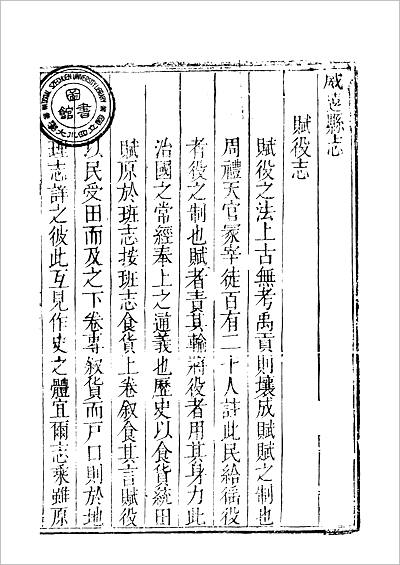 威远縣志
賦役志
賦役之法上古無考禹貢則壤成賦賦之制也
周禮天官冢宰徒百有二十人註此民給徭役
者役之制也賦者責其輸將役者用其身力此
治國之常經奉上之通義也歷史以食貨統田
賦原於班志按班志食貨上卷叙食其言賦役
以民受田而及之下卷專叙貨而戸口則於地
理志詳之彼此互見作史之體宜爾志乘雖原
圖書館
NATIONAL SZECHUEN UNIVERSITY LIBRARY
國立四川大學